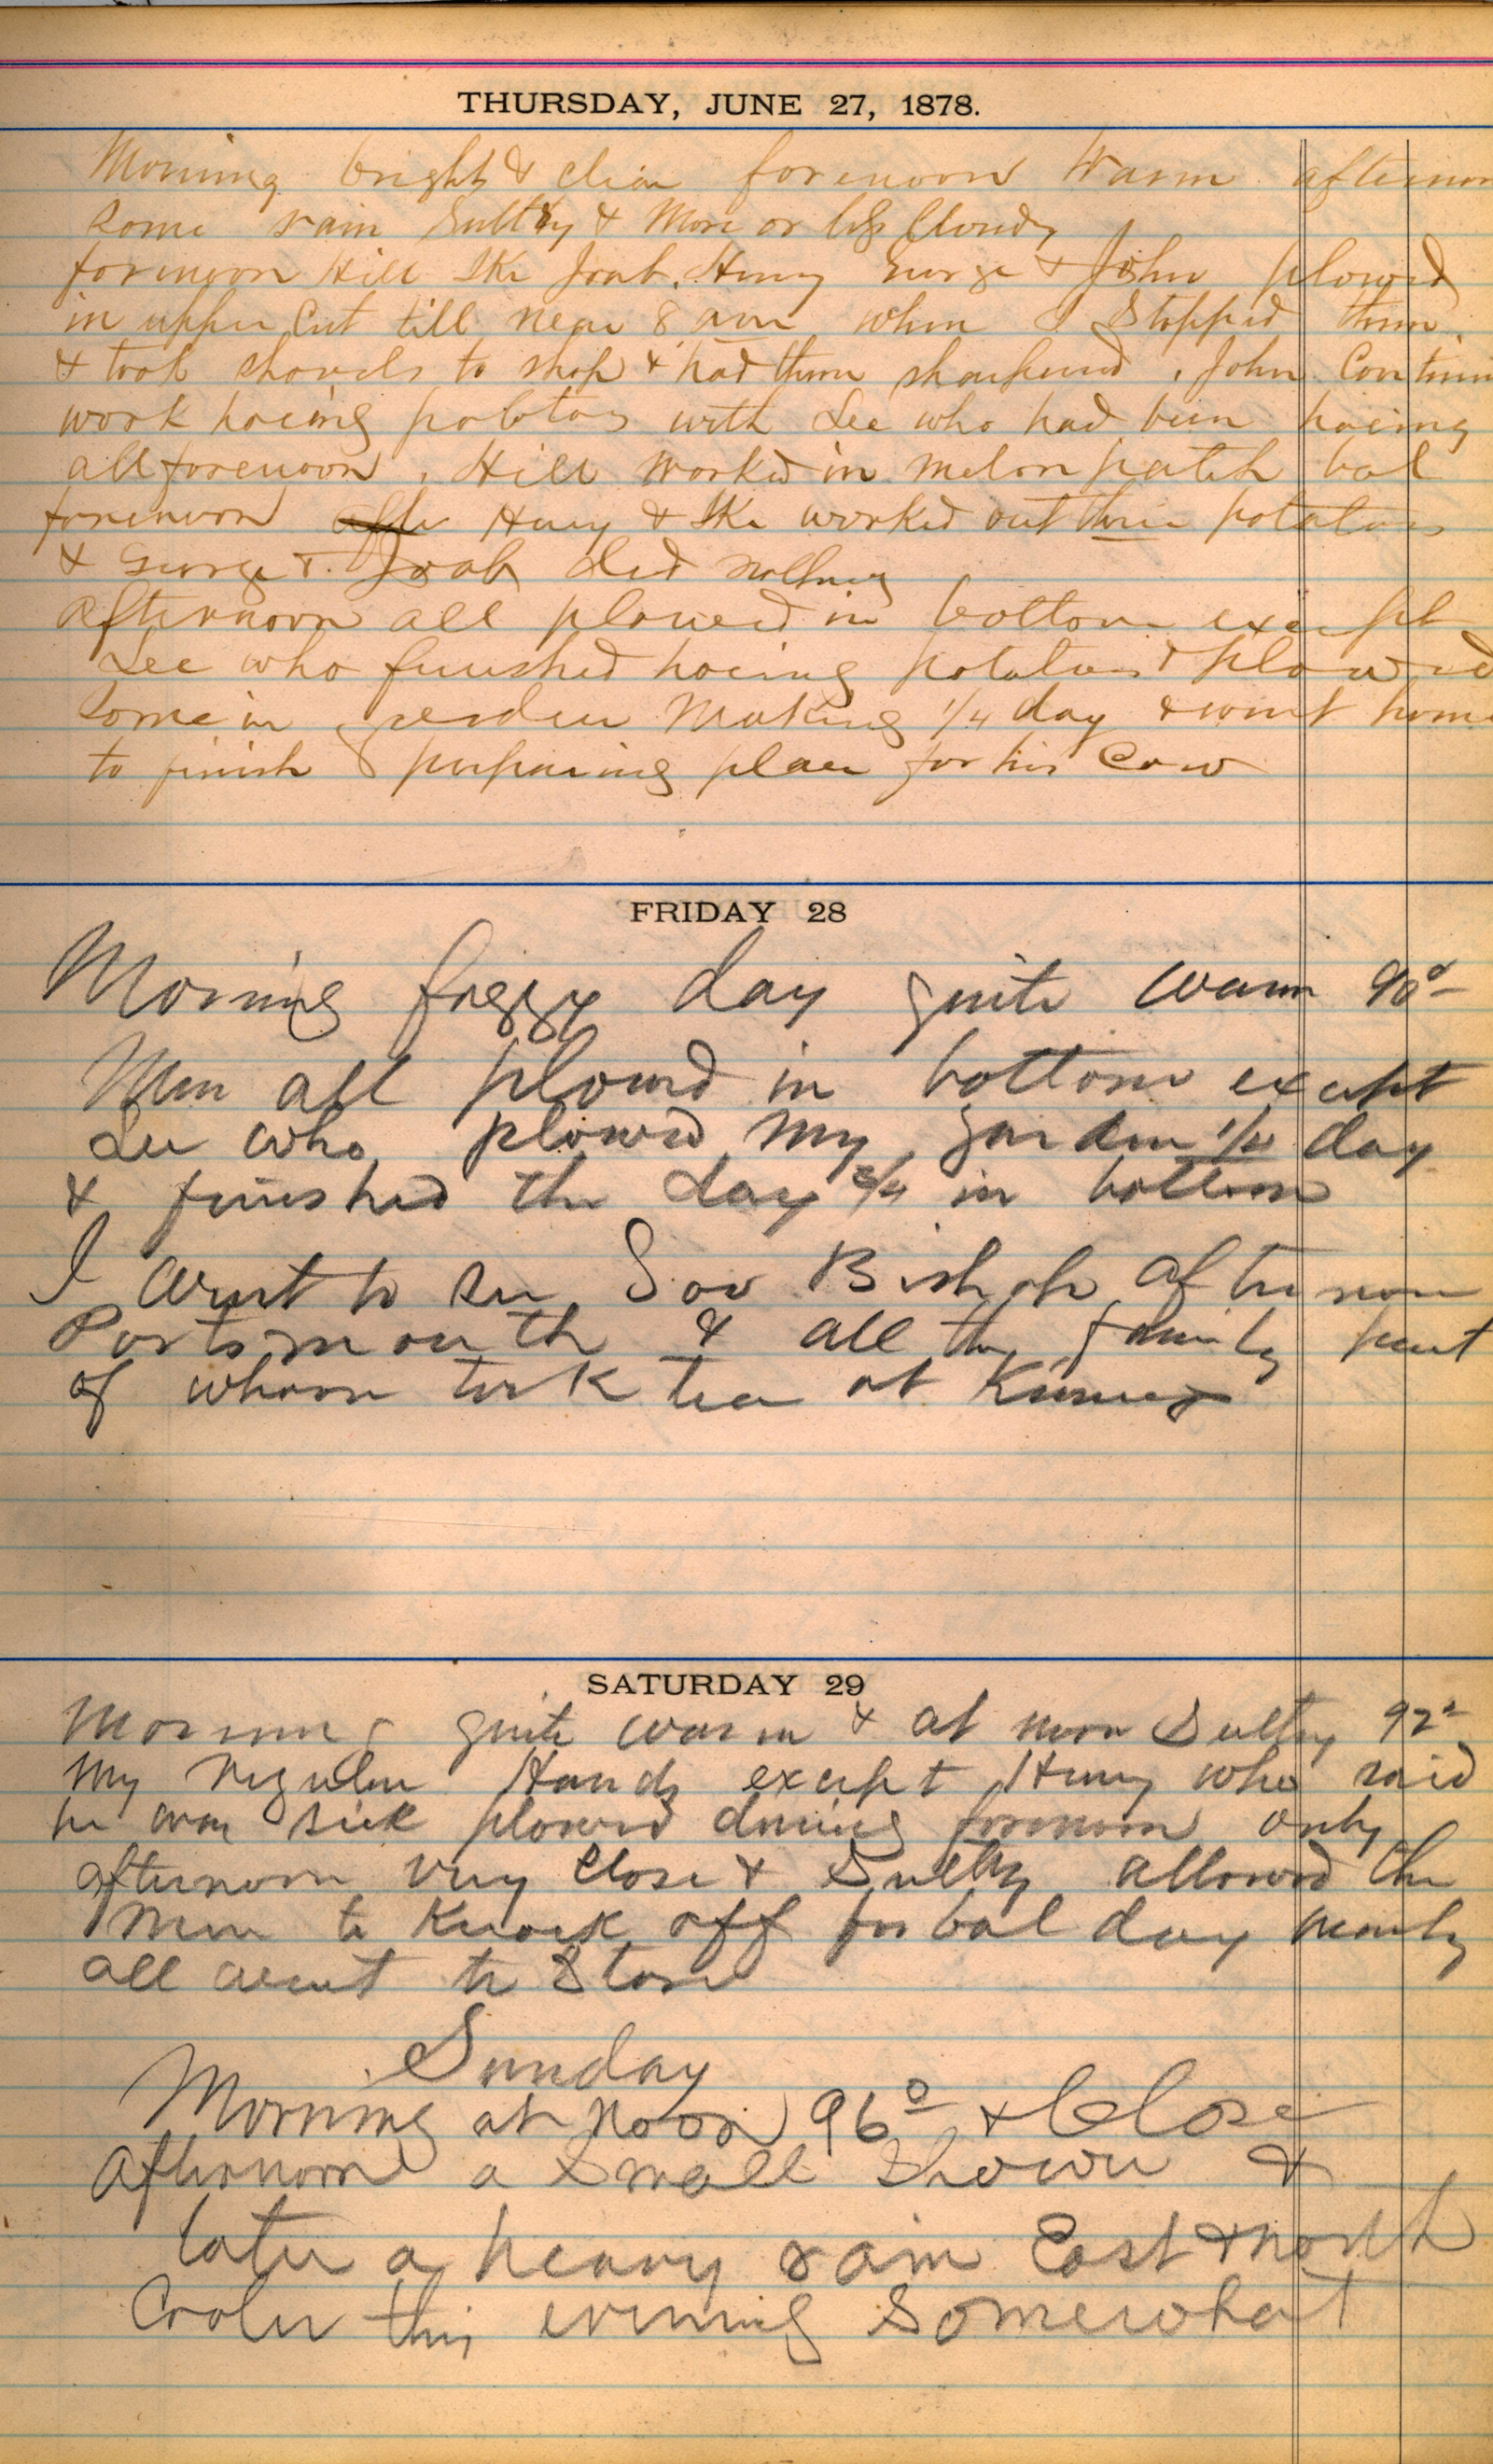 THURSDAY, JUNE 27, 1878.
Morning bright & clear forenoon Warm afternoon
some rain Sultry & More or less Cloudy
forenoon Hill Ike Joab. Henry George & John plowed
in upper Cut till near 8 am when I Stopped them
& took shovels to shop & had them sharpened. John Continu
work hoeing potatoes with Lee who had been hoeing
all forenoon. Hill worked in melon patch bal
forenoon Henry & Ike worked out their potatoes
& George & Joab did nothing
afternoon all plowed in bottom except
Lee who finished hoeing potatoes & plowed
some in garden Making 1/4 day & went home
to finish preparing place for his Cow
FRIDAY 28
Morning foggy day quite warm 90°
Men all plowed in bottom except
Lee who plowed my garden 1/4 day
& finished the day 3/4 in bottom
I went to see Gov Bishop afternoon
Portsmouth & all the family
of whom took tea at Kinneys
SATURDAY 29
Morning quite warm & at noon Sultry 92°
My regular Hands except Henry who said
he was sick plowed during forenoon only
afternoon very Close & Sultry allowed the
Men to Knock off for bal day nearly
all went to Store
Sunday
Morning at noon 96° & Close
Afternoon a small Shower &
later a heavy rain East & north
Cooler this evening Somewhat